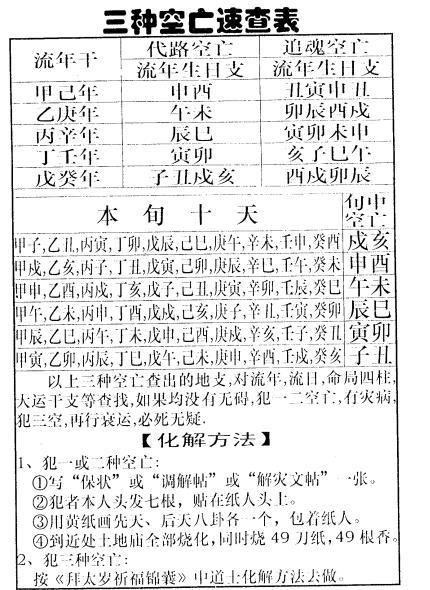 三种空亡速查表
流年干 代路空亡 追魂空亡
流年生日支 流年生日支
甲己年 申酉 丑寅申丑
乙庚年 午未 卯辰酉戍
丙辛年 辰巳 寅卯未申
丁壬年 寅卯 亥子巳午
戊癸年 子丑戍亥 酉戍卯辰
本旬十天 旬中空亡
甲子,乙丑,丙寅,丁卯,戊辰,己巳,庚午,辛未,壬申,癸酉 戍亥
甲戍,乙亥,丙子,丁丑,戊寅,己卯,庚辰,辛巳,壬午,癸未 申酉
甲申,乙酉,丙戍,丁亥,戊子,己丑,庚寅,辛卯,壬辰,癸巳 午未
甲午,乙未,丙申,丁酉,戊戍,己亥,庚子,辛丑,壬寅,癸卯 辰巳
甲辰,乙巳,丙午,丁未,戊申,己酉,庚戍,辛亥,壬子,癸丑 寅卯
甲寅,乙卯,丙辰,丁巳,戊午,己未,庚申,辛酉,壬戍,癸亥 子丑
以上三种空亡查出的地支,对流年,流日,命局四柱,
大运干支等查找,如果均没有无碍,犯一二空亡,有灾病,
犯三空,再行衰运,必死无疑.
【化解方法】
1、犯一或二种空亡:
①写“保状”或“调解帖”或“解灾文帖”一张。
②犯者本人头发七根，贴在纸人头上。
③用黄纸画先天、后天八卦各一个，包着纸人。
④到近处土地庙全部烧化,同时烧49刀纸,49根香。
2、犯三种空亡:
按《拜太岁祈福锦囊》中道士化解方法去做。